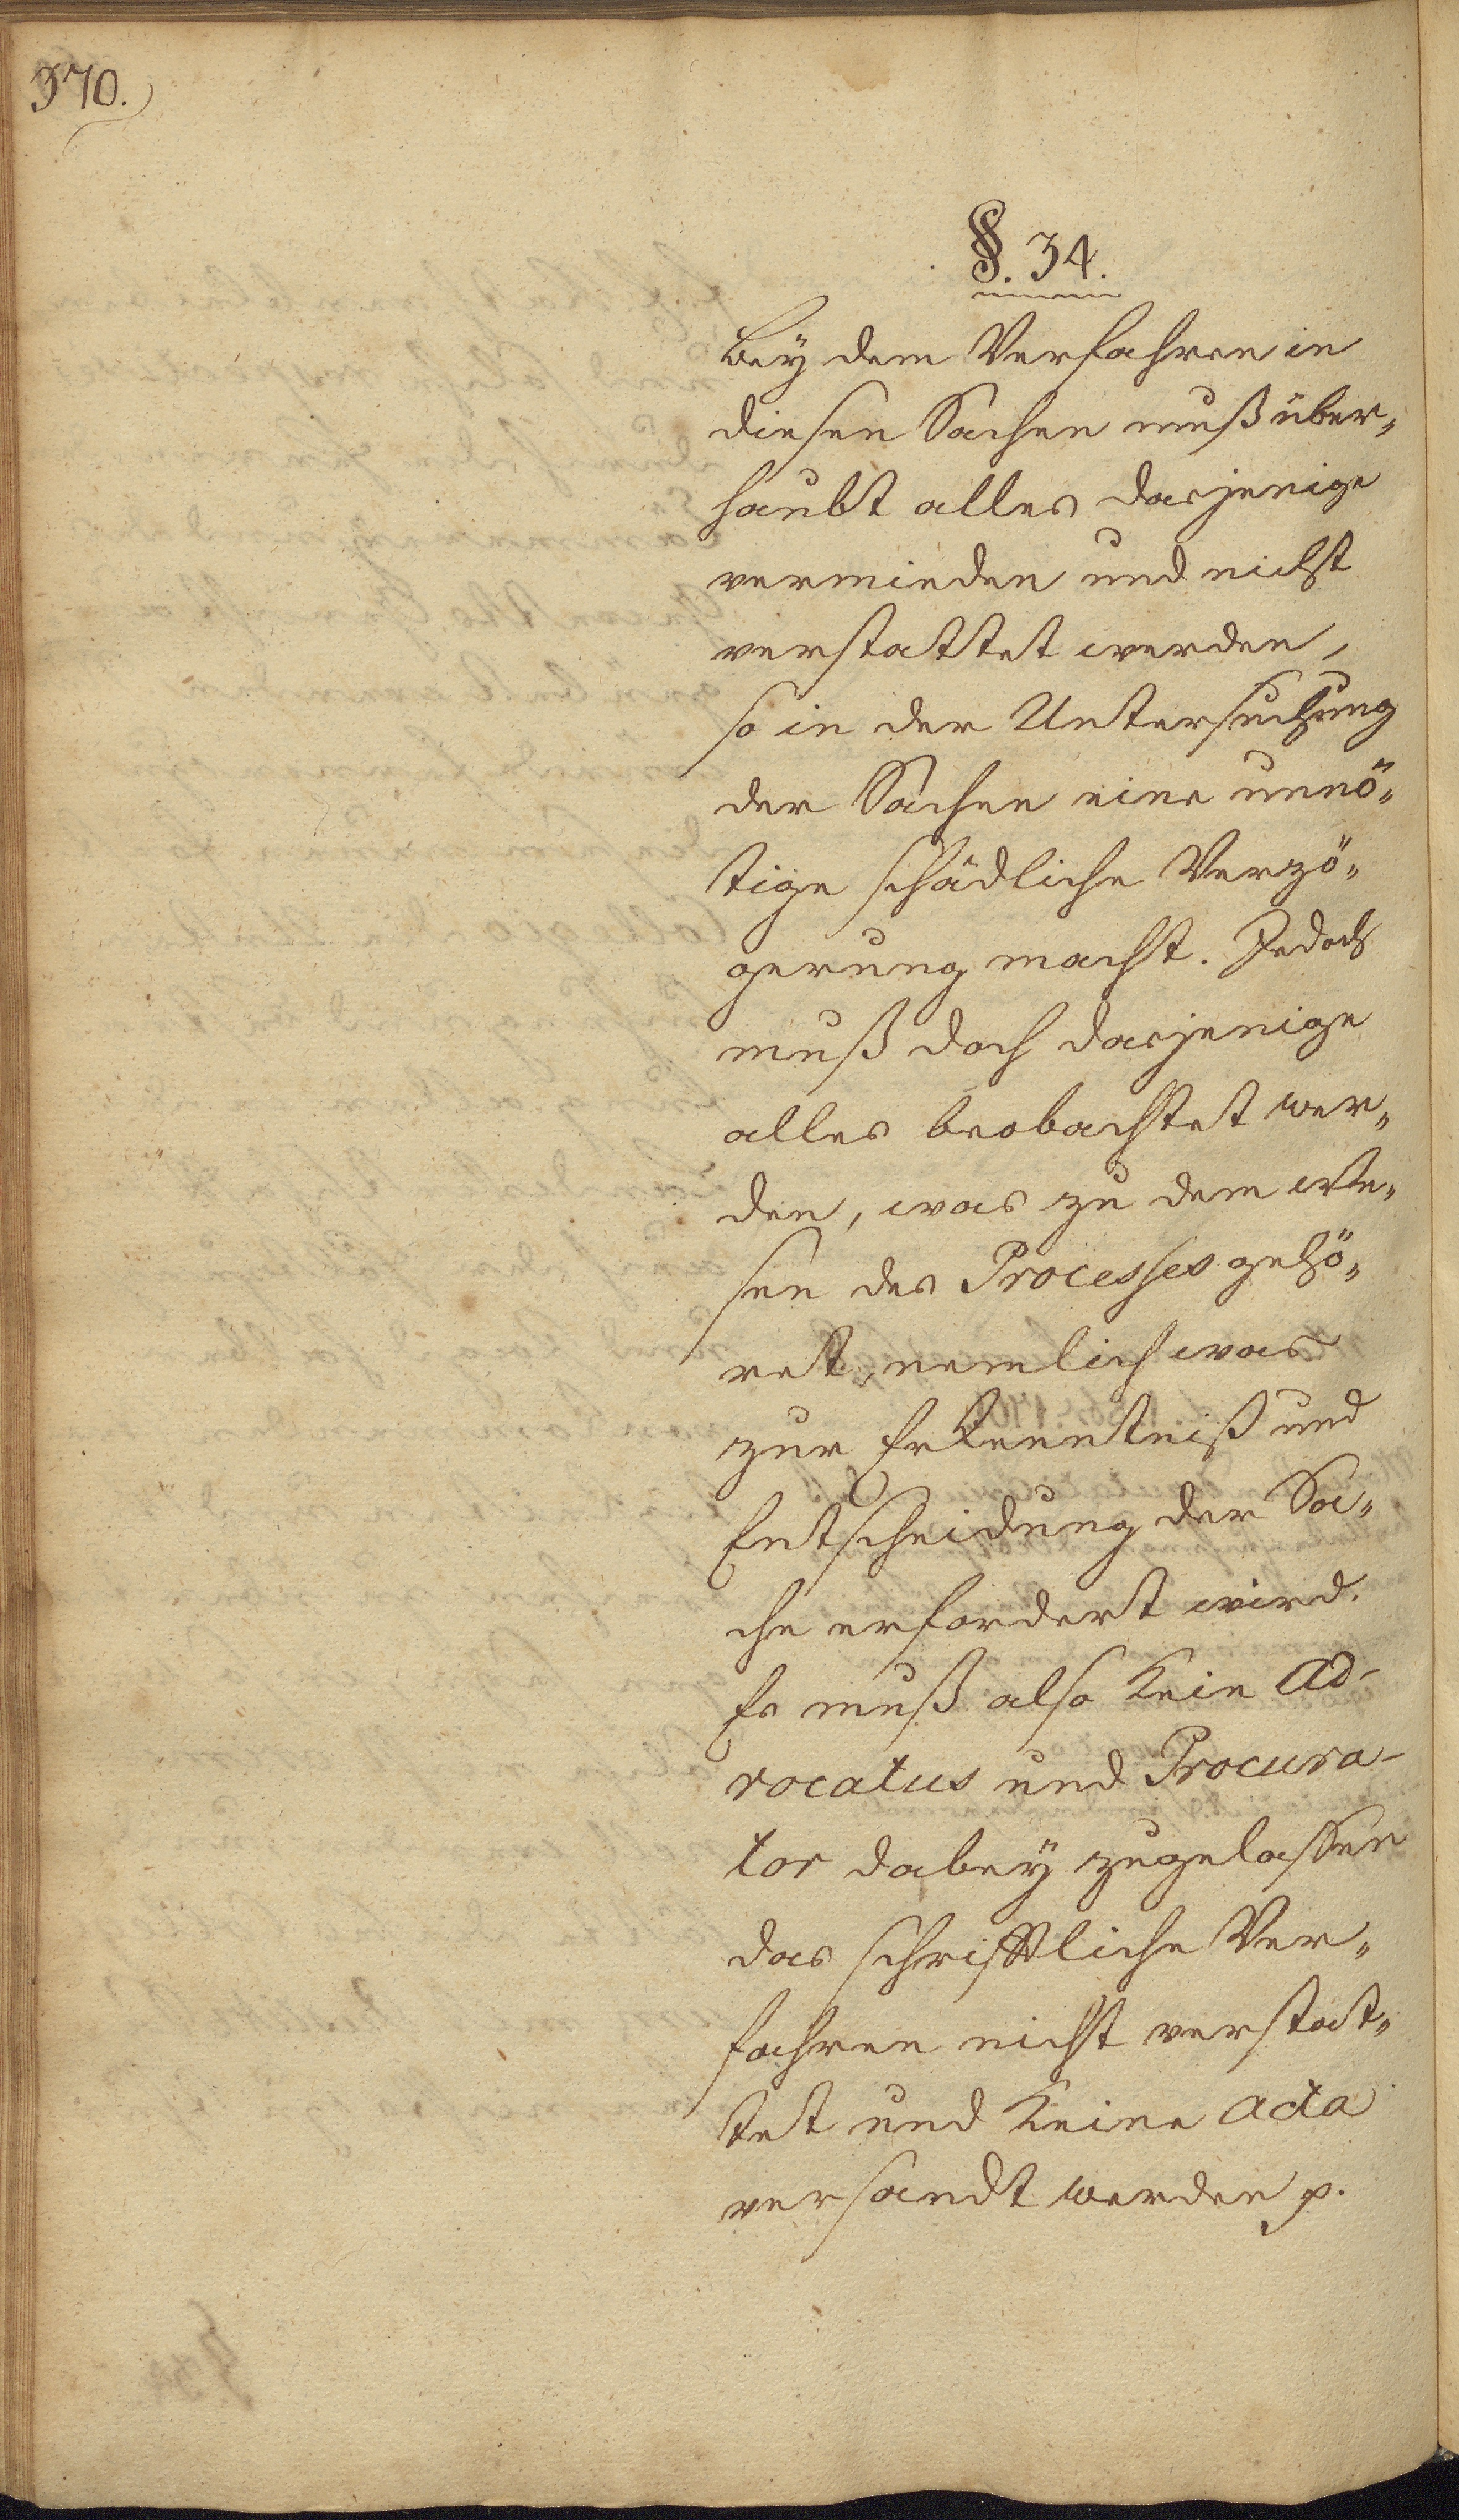 370.
§. 34.
Bey dem Verfahren in
diesen Sachen muß über„
haubt alles dasjenige
vermieden und nicht
verstattet werden,
so in der Untersuchung
der Sachen eine unnö„
tige schädliche Verzö„
gerung macht. Jedoch
muß doch dasjenige
alles beobachtet wer„
den, was zu dem We„
sen des Processes gehö„
ret, nemlich was
zur Erkenntniß und
Entscheidung der Sa„
che erfordert wird.
Es muß also kein Ad-
vocatus und Procura-
tor dabey zugelassen
das schrifftliche Ver„
fahren nicht verstat„
tet und keine Acta
versandt werden p.